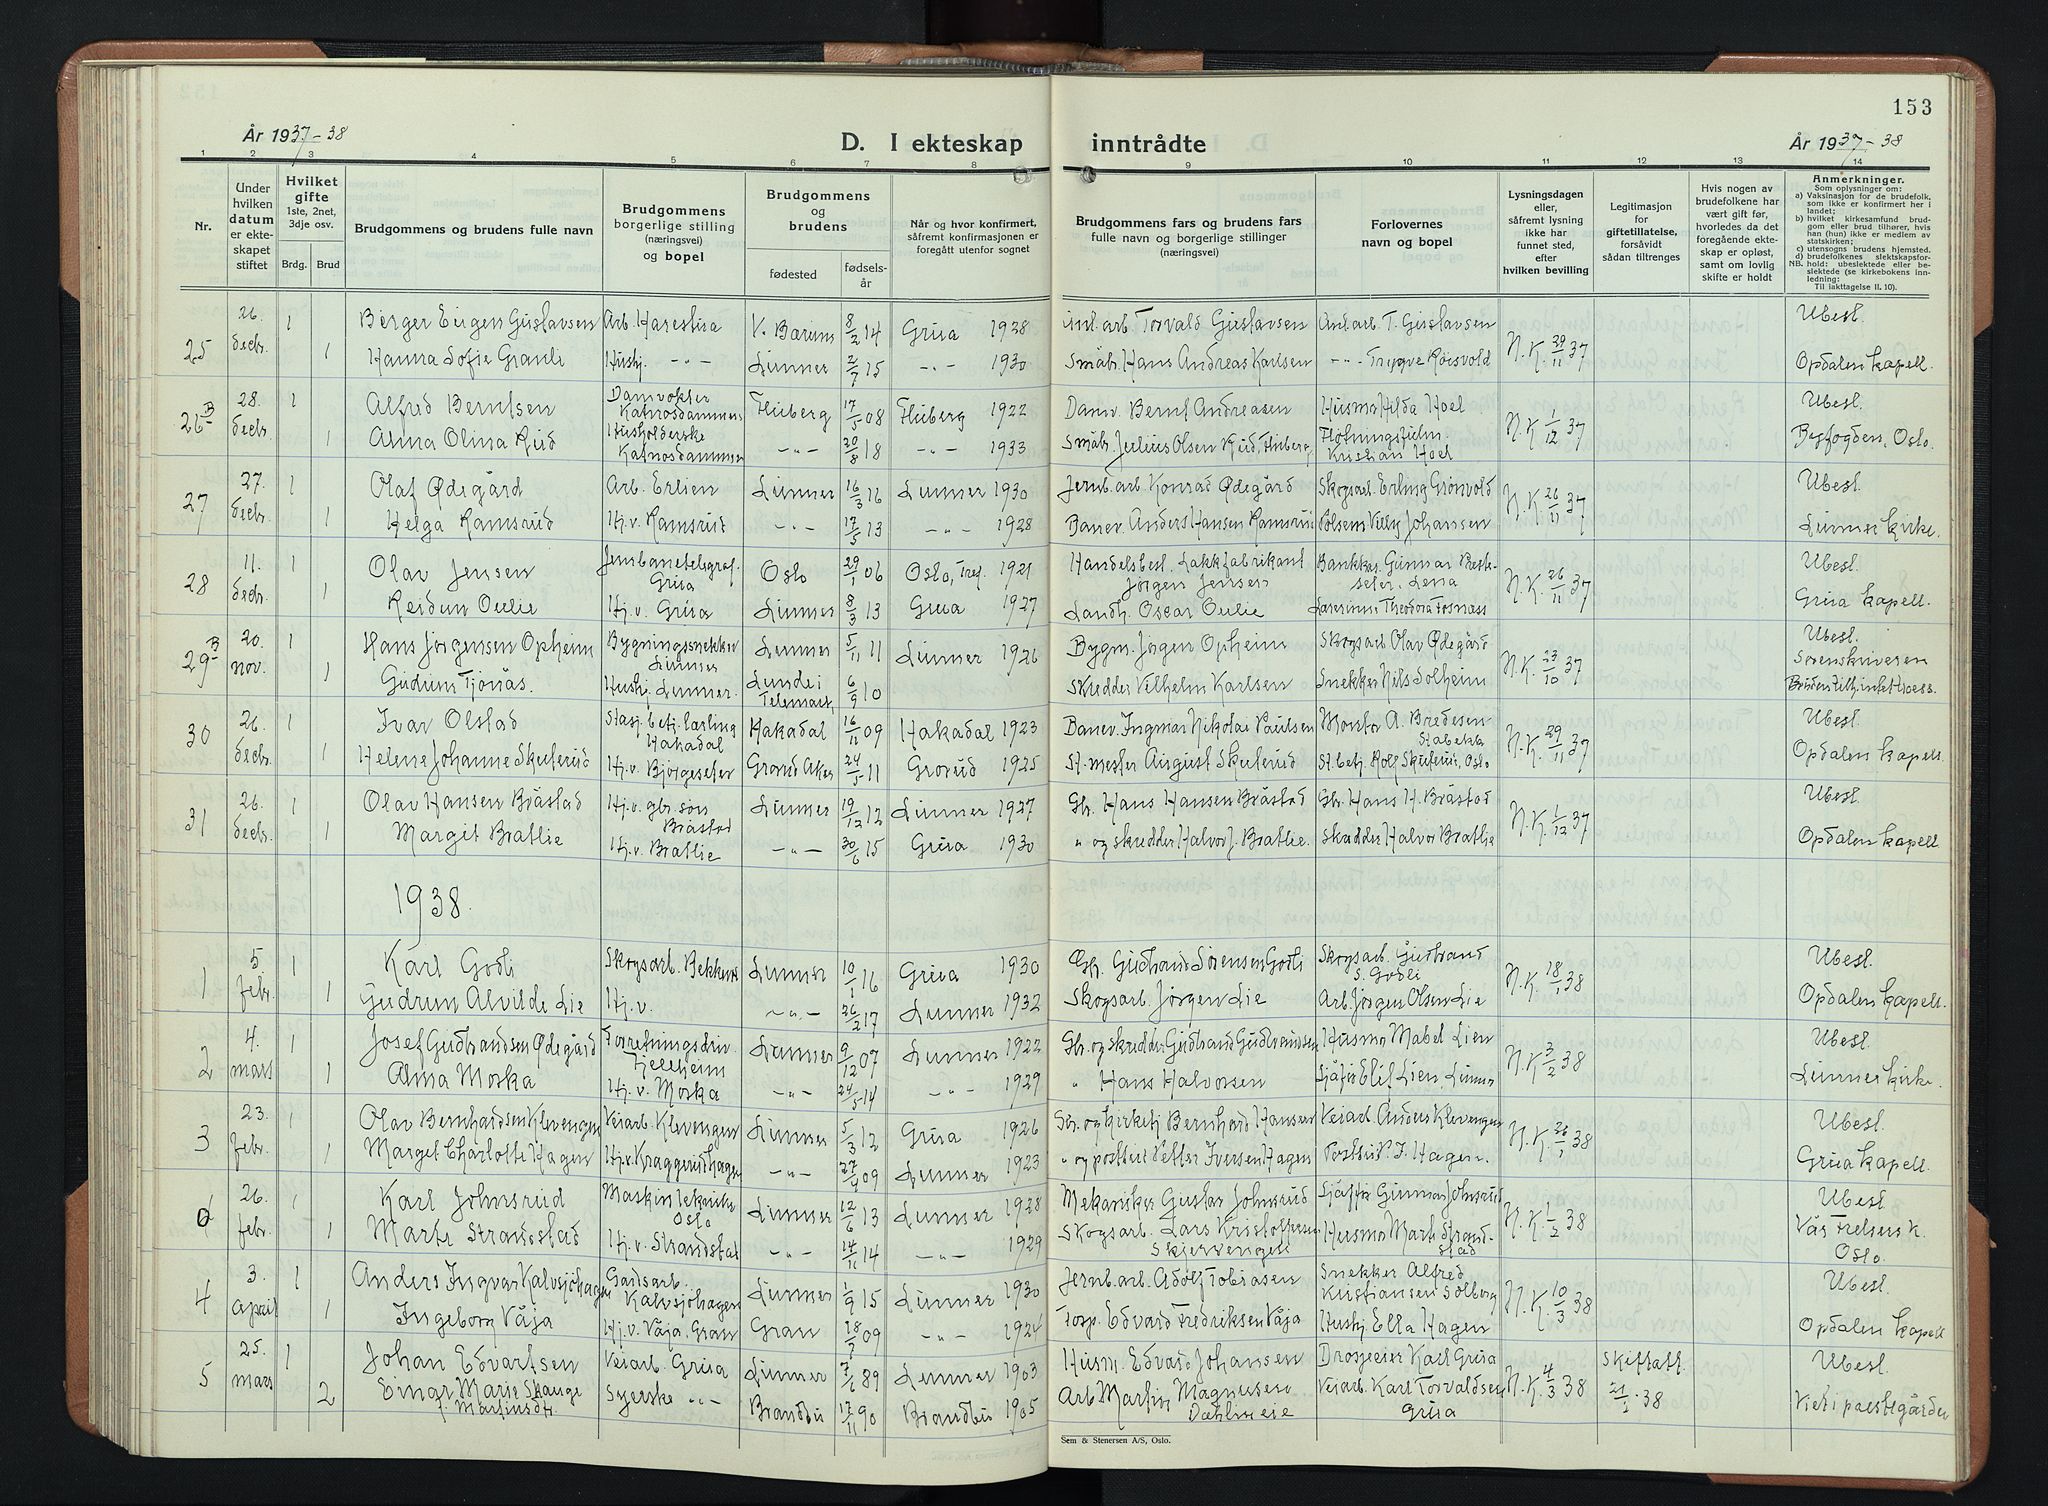 153
År 1937-38
D. I ekteskap inntrådte
År 1937-38
1 2 3 4 5 6 7 8 9 10 11 12 13 14
Nr.
Under hvilken datum er ekteskapet stiftet
Hvilket gifte 1ste, 2net, 3dje osv.
Brdg. Brud
Brudgommens og brudens fulle navn
Brudgommens borgerlige stilling (næringsvei) og bopel
Brudgommens og brudens
fødested
fødselsår
Når og hvor konfirmert, såfremt konfirmasjonen er foregått utenfor sognet
Brudgommens fars og brudens fars fulle navn og borgerlige stillinger (næringsvei)
Forlovernes navn og bopel
Lysningsdagen eller, såfremt lysning ikke har funnet sted, efter hvilken bevilling
Legitimasjon for giftetillatelse, forsåvidt sådan tiltrenges
Hvis nogen av brudefolkene har vært gift før, hvorledes da det foregående ekteskap er opløst, samt om lovlig skifte er holdt
Anmerkninger.
Som oplysning om:
a) Vaksinasjon for de brudefolk, som ikke er konfirmert her i landet;
b) hvilket kirkesamfund brudgom eller brud tilhører, hvis han (hun) ikke er medlem av statskirken;
c) utensogns brudens hjemsted.
d) brudefolkenes slektskapsforhold: ubeslektede eller beslektede (se kirkebokens innledning:
NB. Til iakttagelse II. 10).
25 26. decbr. 1 Birger Eugen Gustavsen Arb. Harestua V. Bærum 8/2 14 Grua 1928 Torvald Gustavsen T. Gustavsen N.K. 29/11 37 Ubesl.
1 Hanna Sofie Granli Hushj. -"- Lunner 2/7 15 -"- 1930 Småbr. Hans Andreas Karlsen -"- Trygve Roisvold Opdalen kapell.
26 B 28. decbr. 1 Alfred Berntsen Damvokter Katnosdammen Fluberg 17/5 08 Fluberg 1922 Damv. Bernt Andreasen Husmo Hilda Hoel N.K. 1/12 37 Ubesl.
1 Anna Olina Rud Husholderske Katnosdammen -"- 20/8 18 -"- 1933 Småbr. Julius Olsen Rud, Fluberg Fløtningsfulm. Kristian Hoel Byfogden, Oslo.
27 27. decbr. 1 Olaf Ødegård Arb. Erlien Lunner 16/3 16 Lunner 1930 Jernb.arb. Konrad Ødegård Skogsarb. Erling Grønvold N.K. 26/11 37 Ubesl.
1 Helga Ramsrud Hj.v. Ramsrud -"- 17/5 13 -"- 1928 Banev. Anders Hansen Ramsrud Willy Johansen Lunner kirke.
28 11. decbr. 1 Olav Jensen Jernbanetelegraf. Grua Oslo 29/1 06 Oslo, Tref. 1921 Handelsbest. Lakkfabrikant Jørgen Jensen Bankkas. Gunnar Prestseter, Lena N.K. 26/11 37 Ubesl.
1 Reidun Oulie Hj.v. Grua Lunner 8/3 13 Grua 1927 Landh. Oscar Oulie Lærerinne Theodora Fosnæss Grua kapell.
29 B 20. nov. 1 Hans Jørgensen Opheim Bygningssnekker Lunner Lunner 5/11 11 Lunner 1926 Bygm. Jørgen Opheim Skogsarb. Olav Ødegård N.K. 23/10 37 Ubesl. Sorenskriveren
1 Gudrun Tjønås. Hushj. Lunner. Lunde i Telemark 6/9 10 Skredder Vilhelm Karlsen Snekker Nils Solheim
30 26. decbr. 1 Ivar Olstad Stasj.betj. Hakadal Hakadal 16/11 09 Hakadal 1923 Banev. Ingmar Nikolai Paulsen A. Bredesen Stabekk N.K. 29/11 37 Ubesl.
1 Helene Johanne Skuterud Hj.v. Bjørgeseter Grorud Aker 24/5 11 Grorud 1925 St.mester August Skuterud St.betj. Rolf Skuterud, Oslo Opdalen kapell.
31 26. decbr. 1 Olav Hansen Bråstad Hj.v. gbr. sønn Bråstad Lunner 19/12 12 Lunner 1927 Gbr. Hans Hansen Bråstad Gbr. Hans H. Bråstad N.K. 1/12 37 Ubesl.
1 Margit Bratlie Hj.v. Bratlie -"- 30/6 15 Grua 1930 " og skredder Halvor J. Bratlie. Skredder Halvor Bratlie Opdalen kapell
1938.
1 5. febr. 1 Karl Godli Skogsarb. Bekken Lunner 10/1 16 Grua 1930 Gbr. Gudbrand Sørensen Godli Skogsarb. Gudbrand S. Godli N.K. 18/1 38 Ubesl.
1 Gudrun Alvilde Lie Hj.v. -"- 26/2 17 Lunner 1932 Skogsarb. Jørgen Lie Arb. Jørgen Olsen Lie Opdalen kapell.
2 4. mars 1 Josef Gudbrandsen Ødegård Forretningsdriv. Fjellheim Lunner 9/12 07 Lunner 1922 Gbr. og skredder Gudbrand Gudbrandsen Husmo Mabel Lien N.K. 3/2 38 Ubesl.
1 Alma Morka Hj.v. Morka -"- 24/5 14 -"- 1929 " Hans Halvorsen Sjåfør Elif Lien Lunner Lunner kirke.
3 23. febr. 1 Olav Bernhardsen Klevengen Veiarb. Klevengen Lunner 5/3 12 Grua 1926 Gbr. og kirketj. Bernhard Hansen Veiarb. Anders Klevengen N.K. 26/1 38 Ubesl.
1 Marget Charlotte Hagen Hj.v. Kraggerudhagen -"- 27/4 09 Lunner 1923 " og postbud Petter Iversen Hagen Postbud P. I. Hagen. Grua kapell.
26. febr. 1 Karl Johnsrud Maskintekniker Oslo Lunner 12/6 13 Lunner 1928 Mekaniker Gustav Johnsrud Sjåfør Gunnar Johnsrud N.K. 1/2 38 Ubesl.
1 Marte Strandstad Hj.v. Strandstad -"- 14/11 14 -"- 1929 Skogsarb. Lars Kristoffersen Skjervengen Husmo Marte Strandstad Vår Frelsers k. Oslo.
4 3. april 1 Anders Ingvar Kalvsjøhagen Gårdsarb. Kalvsjøhagen Lunner 1/9 15 Lunner 1930 Jernb.arb. Adolf Tobiasen Snekker Alfred Kristiansen Solberg N.K. 10/3 38 Ubesl.
1 Ingeborg Våja Hj.v. Våja, Gran Gran 18/7 09 -"- 1924 Torp. Edvard Fredriksen Våja Hushj. Ella Hagen Opdalen kapell
5 25. mars 1 Johan Edvartsen Veiarb. Grua Lunner 7/6 89 Lunner 1903 Husm. Edvard Johansen Drosjeeier Karl Grua N.K. 4/3 38 Skifteatt. 21/1-38 Ubesl.
2 Einar Marie Skauge f. Martinsdtr. Syerske -"- Brandbu 17/11 90 Brandbu 1905 Arb. Martin Magnussen Dæhlineie Veiarb. Karl Torvaldsen Grua Viet i prestegården
Sem & Stenersen A/S, Oslo.